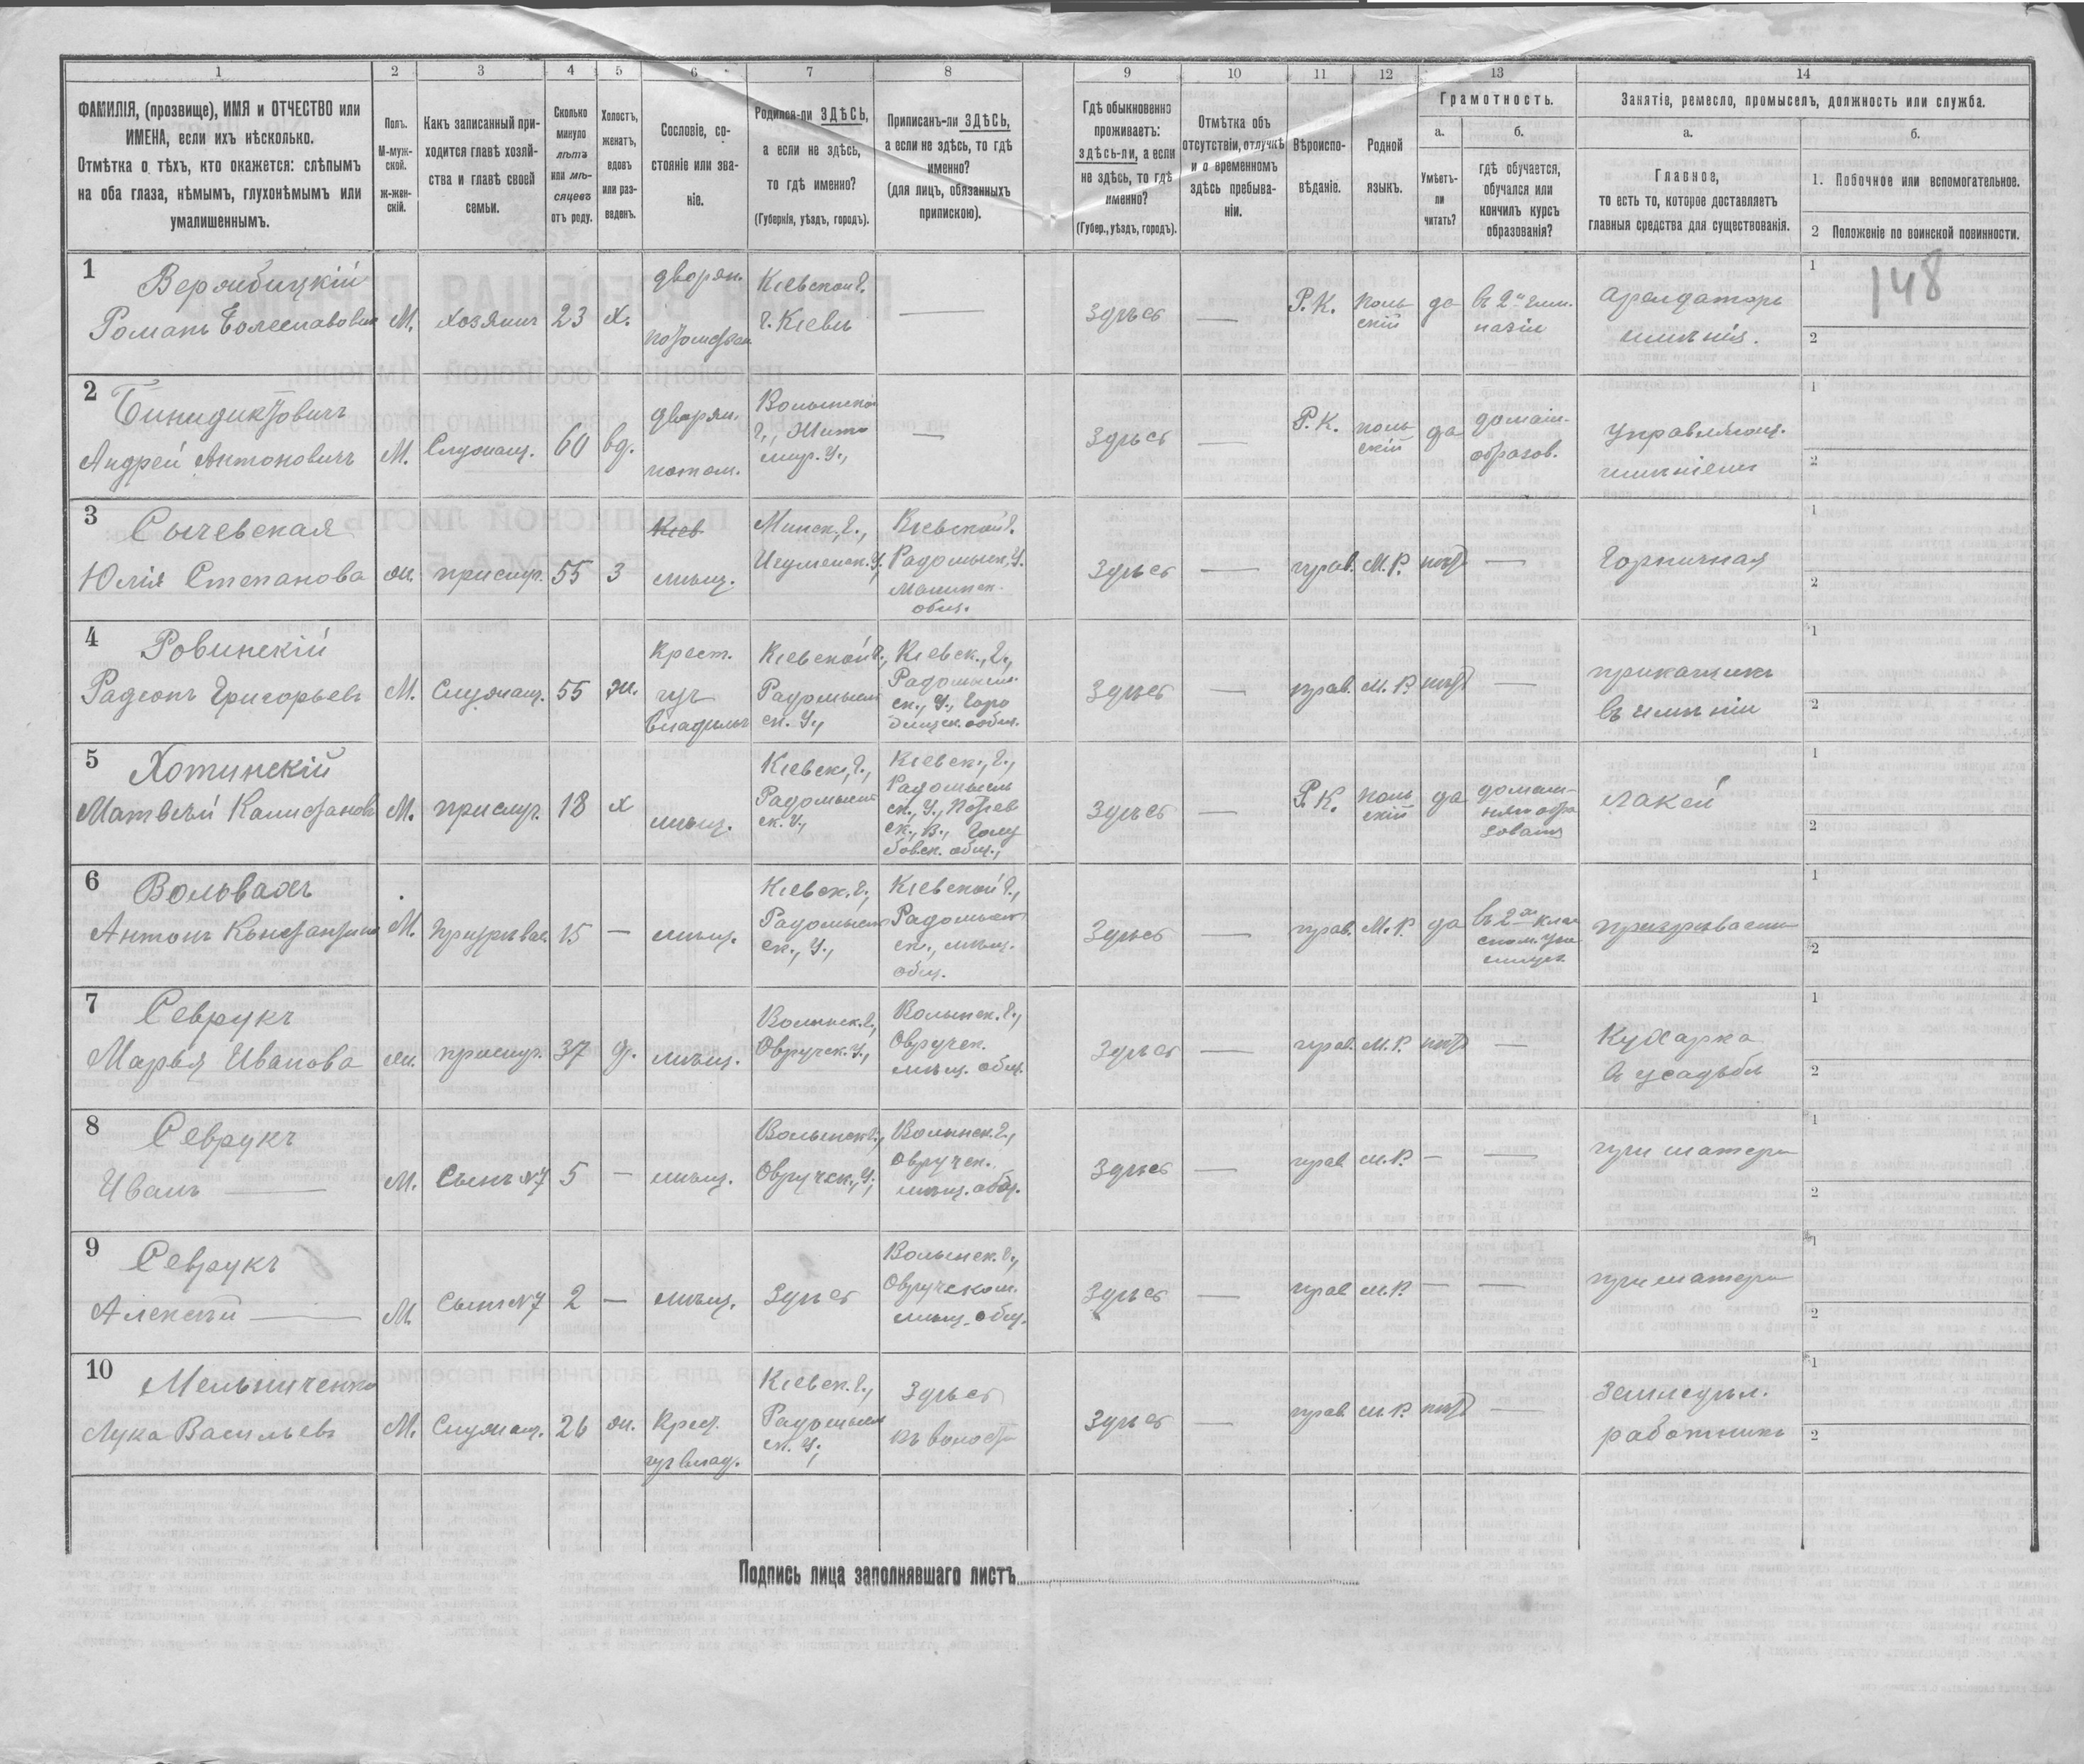 1 2 3 4 5 6 7 8 9 10 11 12 13 14
ФАМИЛІЯ, (прозвище), ИМЯ и ОТЧЕСТВО или
ИМЕНА, если ихъ нѣсколько.
Отмѣтка о тѣхъ, кто окажется: слѣпымъ
на оба глаза, нѣмымъ, глухонѣмымъ или
умалишеннымъ.
Полъ.
М-муж-
ской.
ж-жен-
скій.
Какъ записанный при-
ходится главѣ хозяй-
ства и главѣ своей
семьи.
Сколько
минуло
лѣтъ
или мѣ-
сяцевъ
отъ роду.
Холостъ,
женатъ,
вдовъ
или раз-
веденъ.
Сословіе, со-
стояніе или зва-
ніе.
Родился-ли ЗДѢСЬ,
а если не здѣсь,
то гдѣ именно?
(Губернія, уѣздъ, городъ).
Приписанъ-ли ЗДѢСЬ,
а если не здѣсь, то гдѣ
именно?
(для лицъ, обязанныхъ
припискою).
Гдѣ обыкновенно
проживаетъ:
здѣсь-ли, а если
не здѣсь, то гдѣ
именно?
(Губер., уѣздъ, городъ).
Отмѣтка объ
отсутствіи, отлучкѣ
и о временномъ
здѣсь пребыва-
ніи.
Вѣроиспо-
вѣданіе.
Родной
языкъ.
Грамотность.
а.
Умѣетъ-
ли
читать?
б.
гдѣ обучается,
обучался или
кончилъ курсъ
образованія?
Занятіе, ремесло, промыселъ, должность или служба.
а.
Главное,
то есть то, которое доставляетъ
главныя средства для существованія.
б.
1. Побочное или вспомогательное.
2 Положеніе по воинской повинности.
148
1
Вержбицкій
Романъ Болеславовичъ
М.
хозяинъ
23
х.
дворян.
потомствен
Кіевской г.
г. Кіевъ
—
Здѣсь
—
Р.К.
поль
скій
да
въ 2й гим.
назіи
Арендаторъ
имѣнія.
1
2
2
Бинидиктовичъ
Андрей Антоновичъ
М.
Служащ.
60
вд.
дворян.
потом.
Волынской
г., Жито
мир. у.,
—
Здѣсь
—
Р.К.
поль
скій
да
домаш.
образов.
Управляющ.
имѣніемъ
1
2
3
Сычевская
Юлія Степанова
ж.
прислуг.
55
З
Кіев
мѣщ.
Минск. г.,
Игуменск. у.
Кіевской г.
Радомыск. у.
Малинск.
общ.
Здѣсь
—
прав.
М.Р.
нѣт
—
Горничная
1
2
4
Ровинскій
Радіонъ Григорьевъ
М.
Служащ.
55
ж.
Крест.
изъ
владѣльч
Кіевской г.,
Радомысль
ск. у.,
Кіевск., г.,
Радомысль
ск., у., Горо
дищск. общ.
Здѣсь
—
прав.
М.Р.
нѣт
—
прикащикъ
въ имѣніи
1
2
5
Хотинскій
Матвѣй Калистановъ
М.
прислуг.
18
х
мѣщ.
Кіевск., г.,
Радомысль
ск. у.,
Кіевск., г.,
Радомысль
ск., у., Потіев
ск., в., Голу
бовск. общ.,
Здѣсь
—
Р.К.
поль
скій
да
домаш-
няго обра
зования
лакей
1
2
6
Вольвахъ
Антонъ Константинов
М.
Призрѣвае.
15
—
мѣщ.
Кіевск. г.,
Радомысль
ск., у.,
Кіевской г.,
Радомысль
ск., мѣщ.
общ.
Здѣсь
—
прав.
М.Р.
да
въ 2хъ клас
сном. учи
лищѣ
призрѣваемый
1
2
7
Севрукъ
Марья Иванова
ж.
прислуг.
37
д.
мѣщ.
Волынск. г.,
Овручск. у.,
Волынск. г.,
Овручск.
мѣщ. общ.
Здѣсь
—
прав.
М.Р.
нѣт
—
Кухарка
въ усадьбѣ
1
2
8
Севрукъ
Иванъ —
М.
Сынъ №7
5
—
мѣщ.
Волынск г.,
Овручск., у.,
Волынск. г.,
Овручск.
мѣщ. общ.
Здѣсь
—
прав
М.Р.
—
—
при матери
1
2
9
Севрукъ
Алексѣй —
М
Сынъ №7
2
—
мѣщ.
Здѣсь
Волынск. г.,
Овручском.
мѣщ. общ.
Здѣсь
—
прав
М.Р.
—
—
при матери
1
2
10
Мельниченко
Лука Васильевъ
М.
Служащ.
26
ж.
Крест.
изъ влад.
Кіевск. г.,
Радомысль
ск. у.,
Здѣсь
къ волости
Здѣсь
—
прав.
М.Р.
нѣт
—
Земледѣл.
работникъ
1
2
Подпись лица заполнявшаго листъ